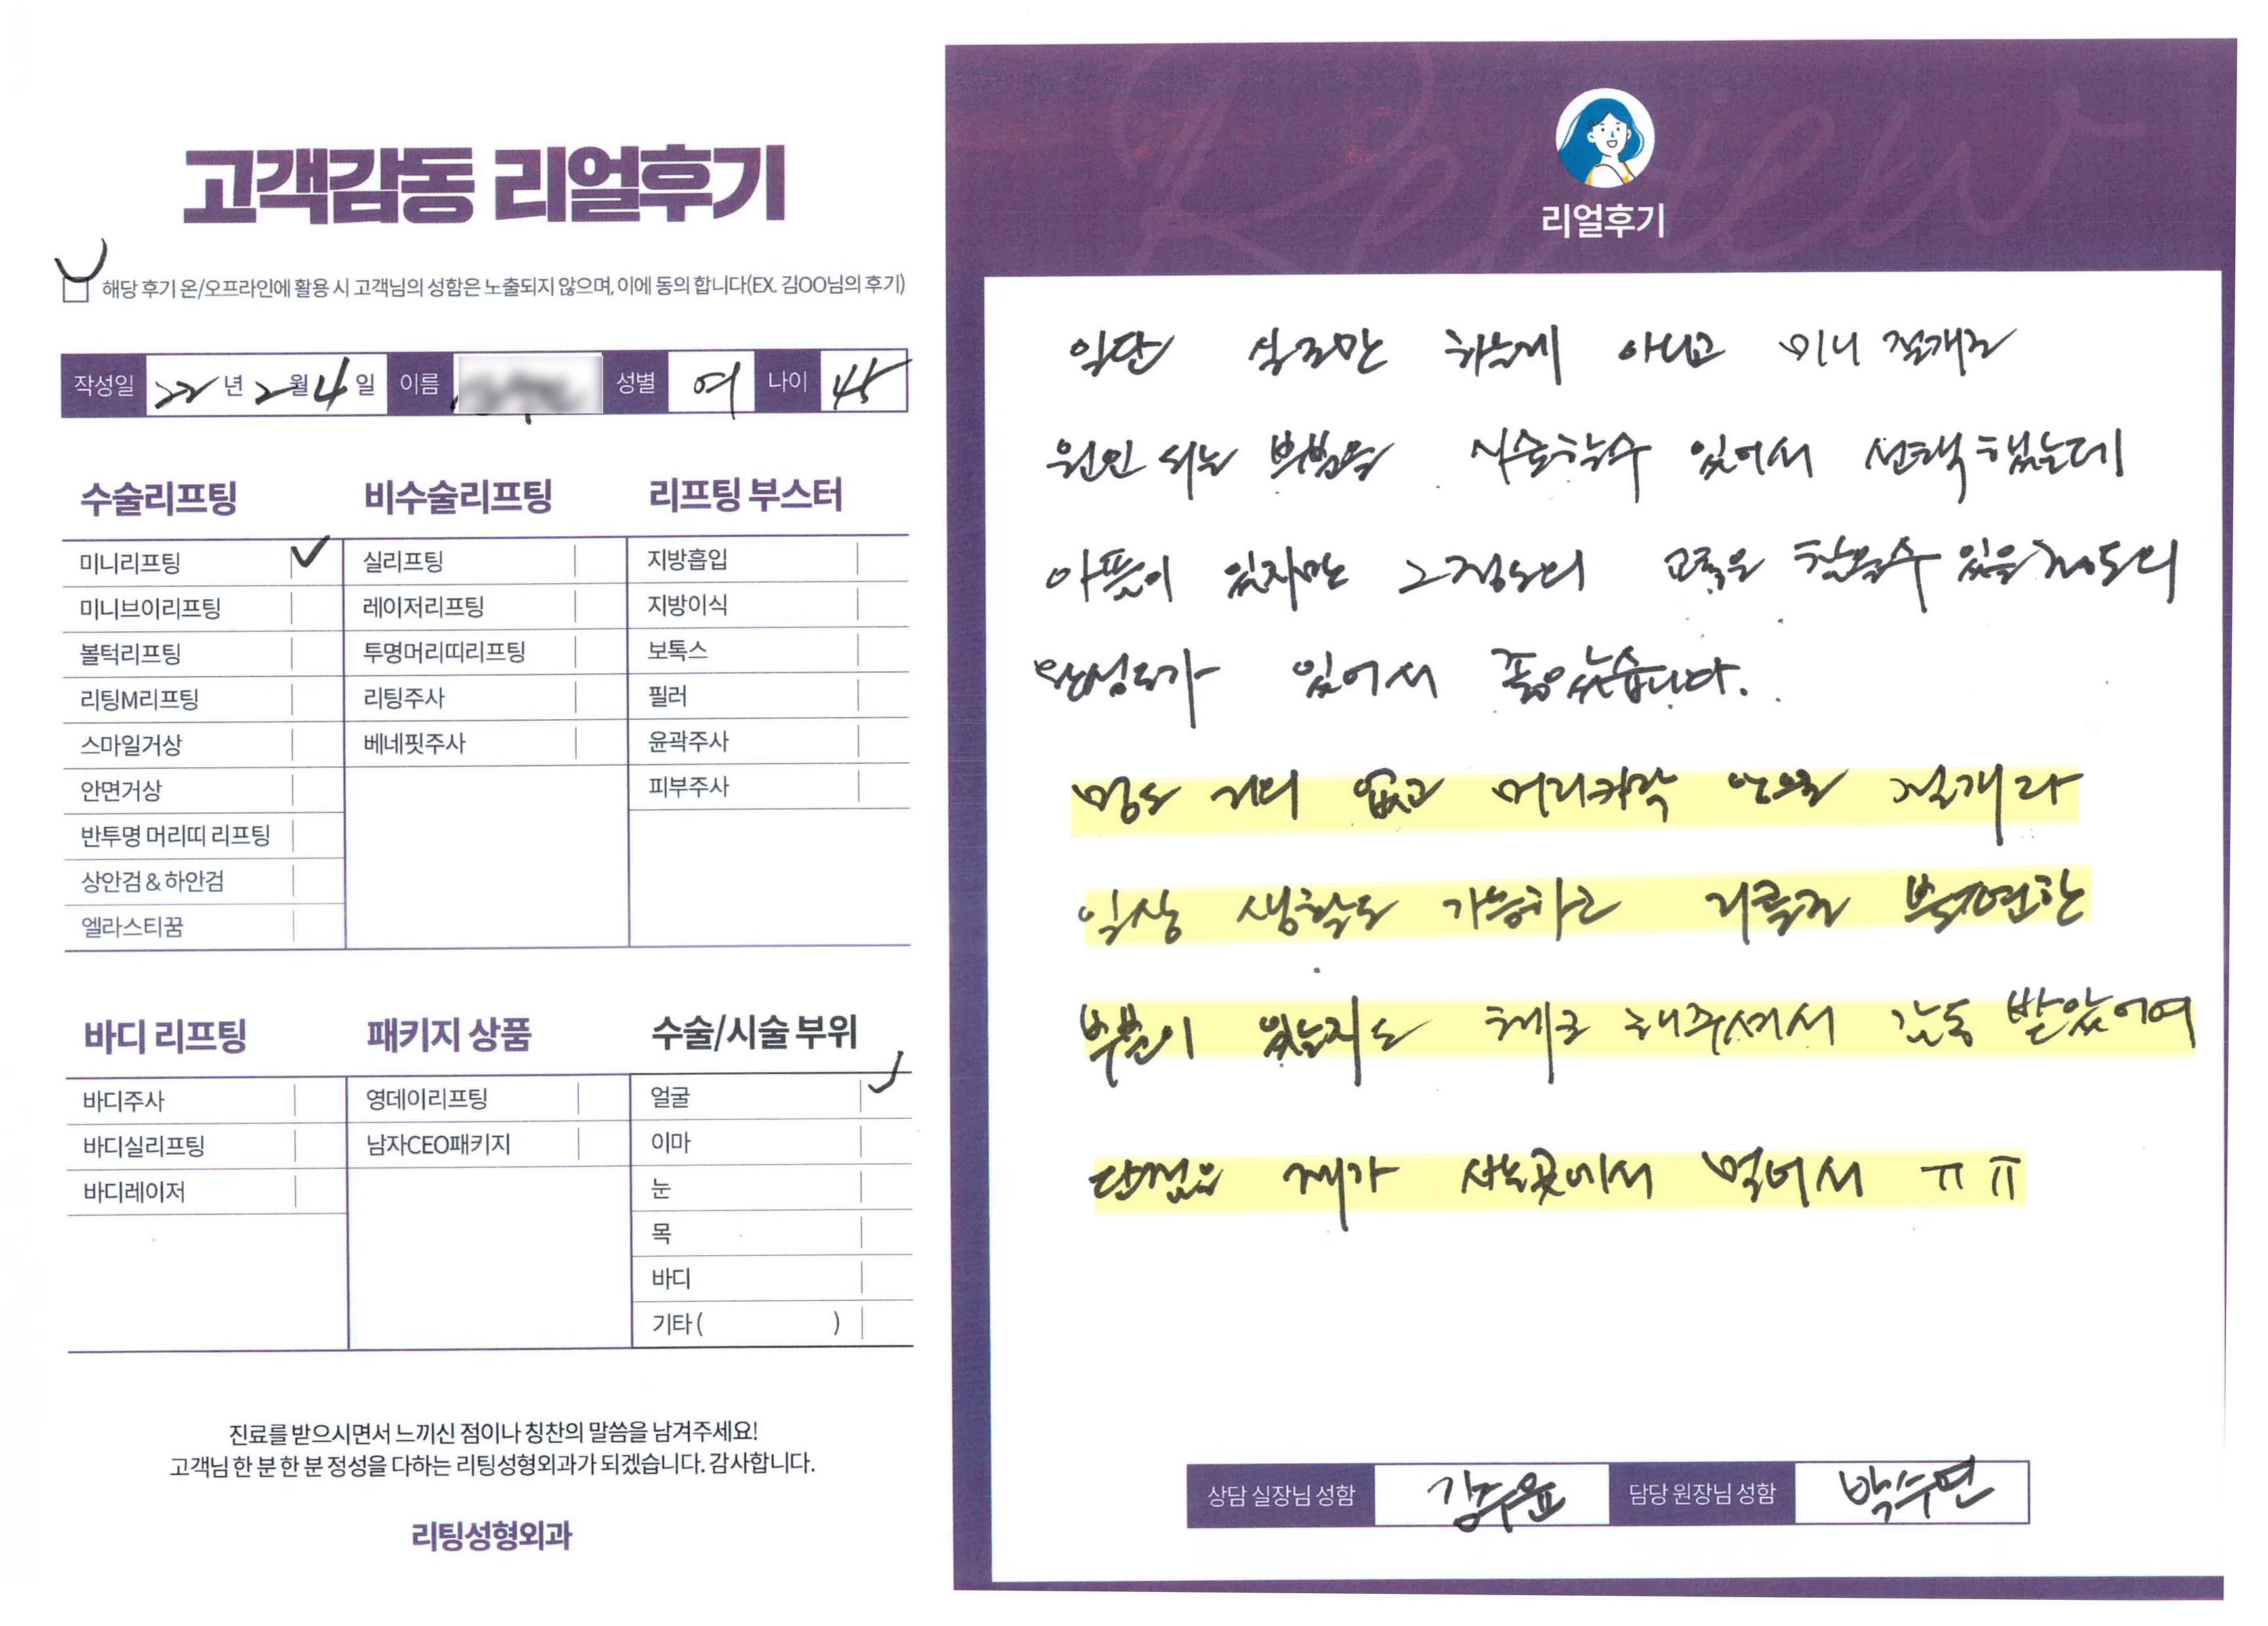 고객감동 리얼후기
해당 후기 온/오프라인에 활용 시 고객님의 성함은 노출되지 않으며, 이에 동의 합니다(EX. 김OO님의 후기)
작성일 22년 2월 4일 이름 성별 여 나이 45
수술리프팅
미니리프팅
미니브이리프팅
볼턱리프팅
리팅M리프팅
스마일거상
안면거상
반투명 머리띠 리프팅
상안검 & 하안검
엘라스티꿈
비수술리프팅
실리프팅
레이저리프팅
투명머리띠리프팅
리팅주사
베네핏주사
리프팅 부스터
지방흡입
지방이식
보톡스
필러
윤곽주사
피부주사
바디 리프팅
바디주사
바디실리프팅
바디레이저
패키지 상품
영데이리프팅
남자CEO패키지
수술/시술 부위
얼굴
이마
눈
목
바디
기타 ( )
진료를 받으시면서 느끼신 점이나 칭찬의 말씀을 남겨주세요!
고객님 한 분 한 분 정성을 다하는 리팅성형외과가 되겠습니다. 감사합니다.
리팅성형외과
Review
리얼후기
일단 실로만 하는게 아니고 미니 절개로
원인 되는 부분을 시술할수 있어서 선택했는데
아픔이 있지만 그정도의 고통은 참을수 있을 정도의
완성도가 있어서 좋았습니다.
멍도 거의 없고 머리카락 안으로 절개라
일상 생활도 가능하고 리콜로 부자연한
부분이 있는지도 체크 해주셔서 감동 받았어여
단점은 제가 사는곳에서 멀어서 ㅠㅠ
상담 실장님 성함 강주윤 담당 원장님 성함 박수연